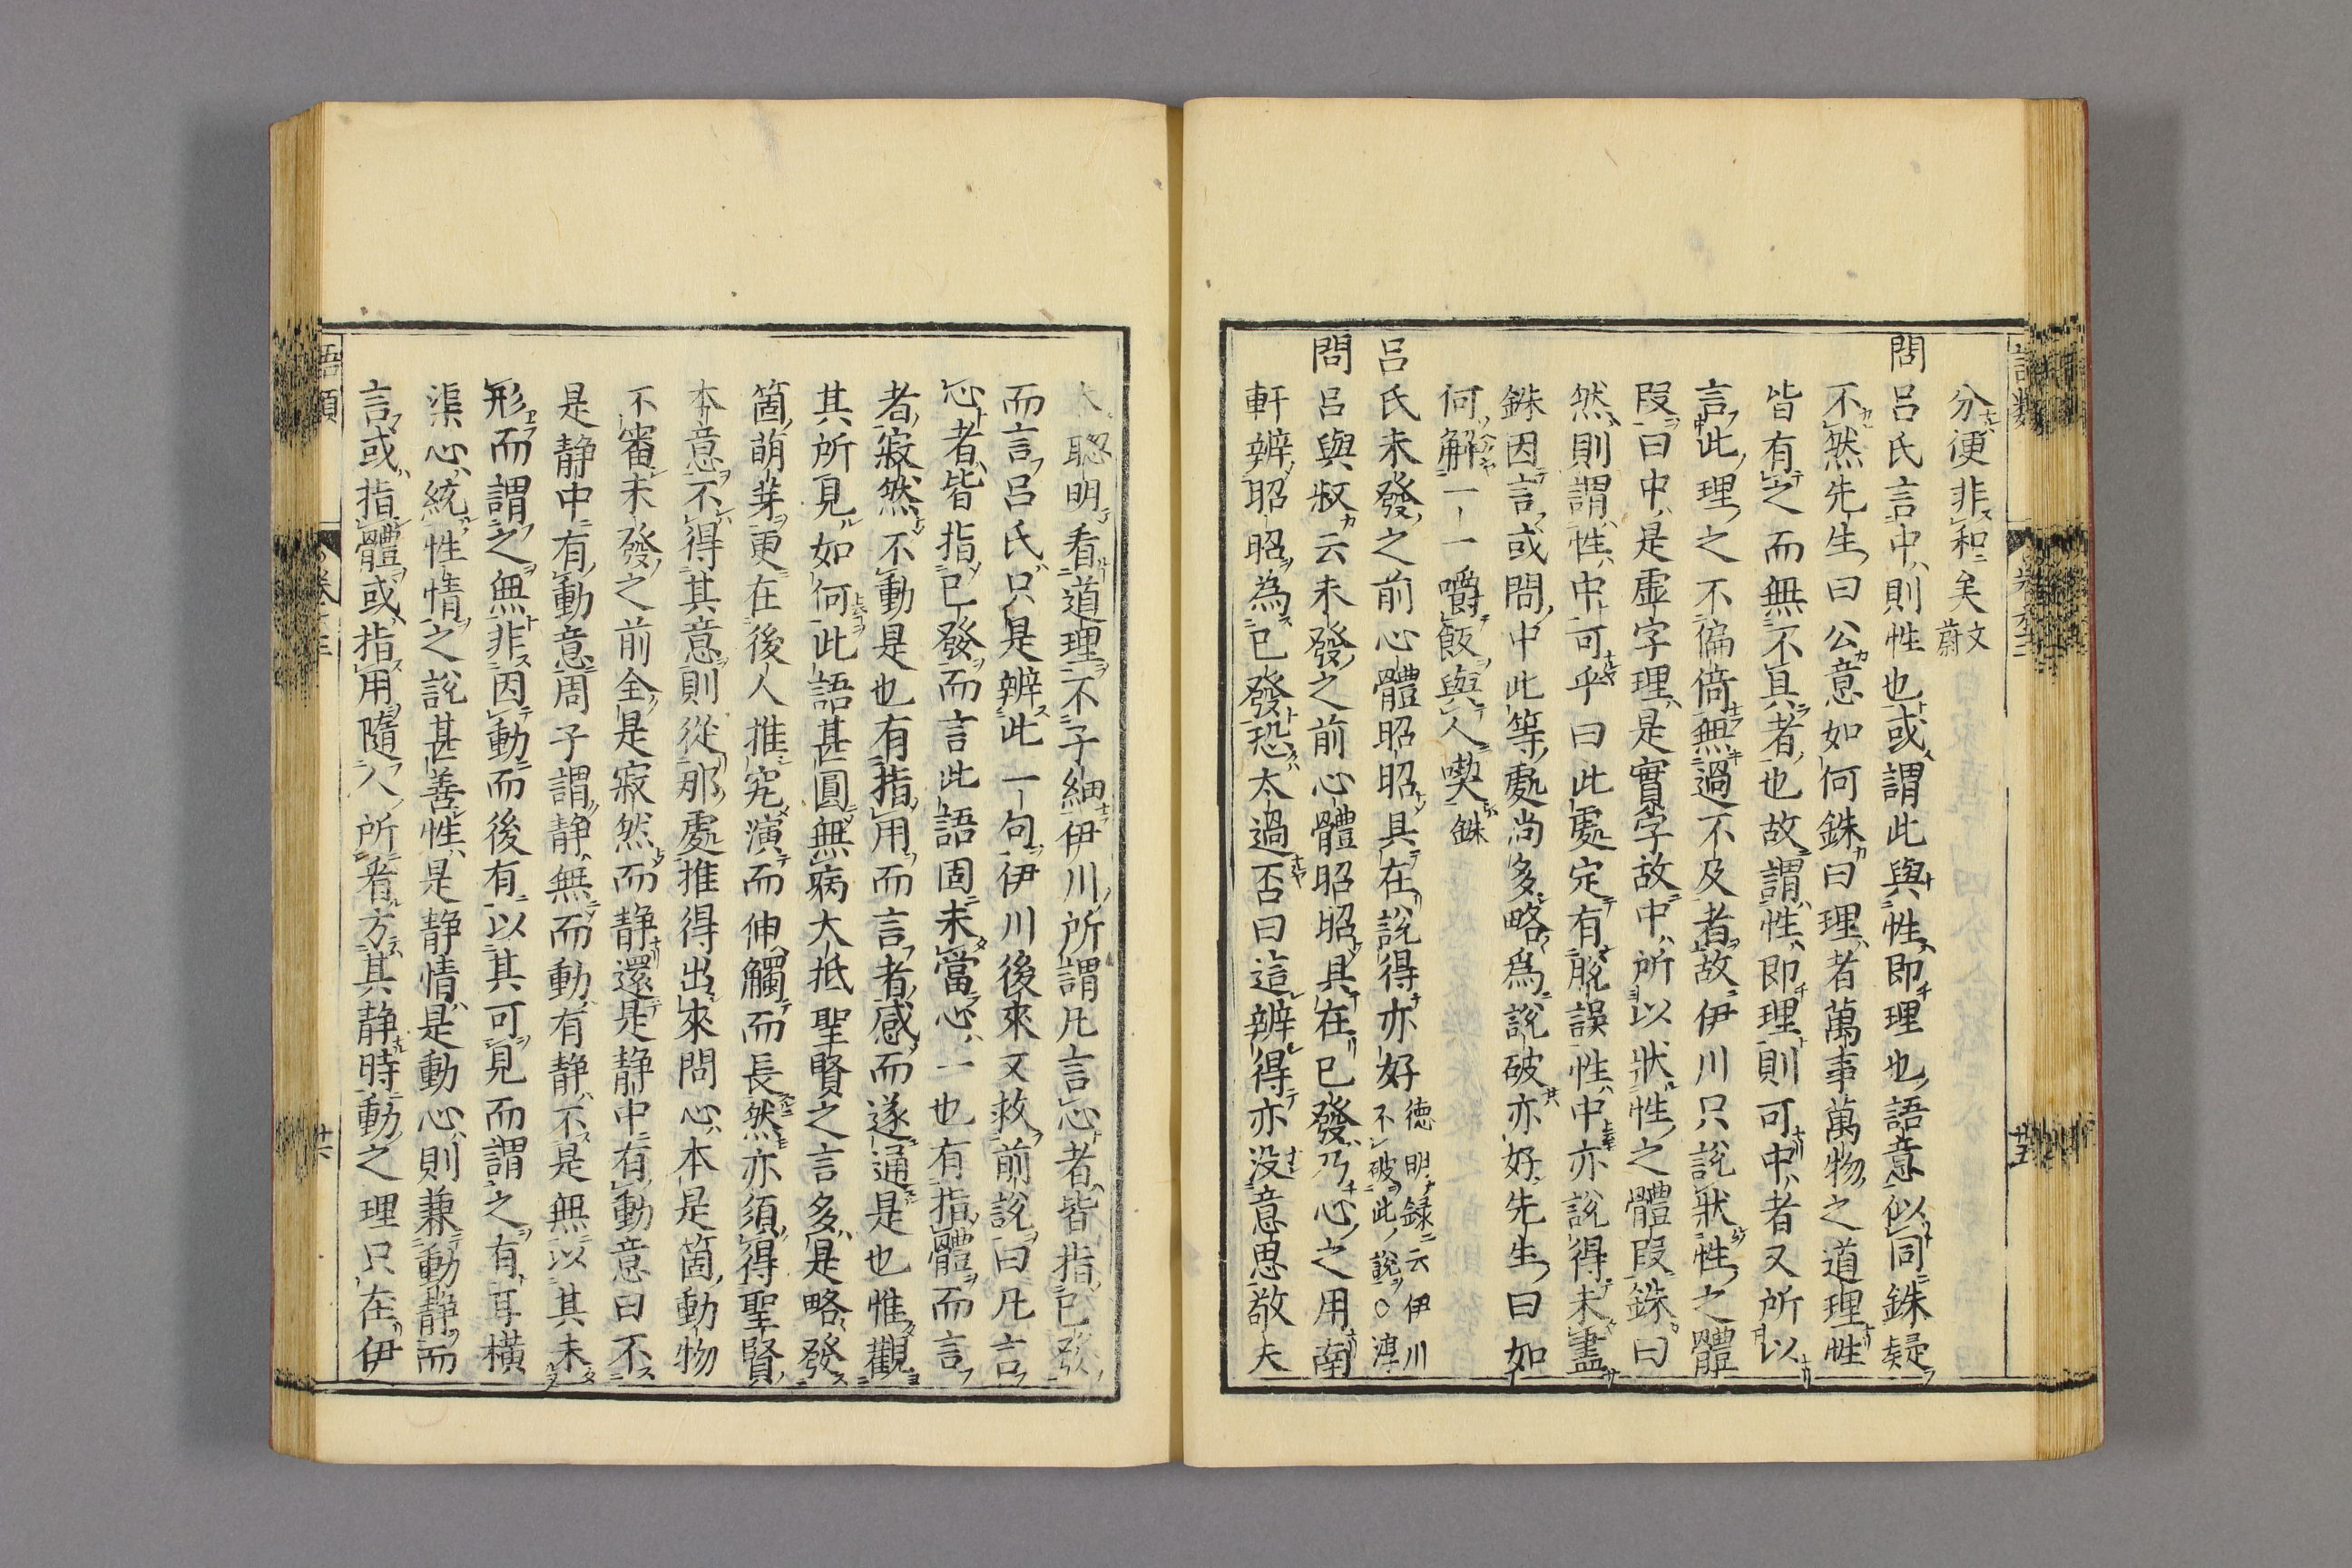 分便非和矣文蔚
問呂氏言中則性也或謂此與性即理也語意似同銖疑
不然先生曰公意如何銖曰理者萬事萬物之道理性
皆有之而無不具者也故謂性即理則可中者又所以
言此理之不偏倚無過不及者故伊川只說狀性之體
段曰中是虛字理是實字故中所以狀性之體段銖曰
然則謂性中可乎曰此處定有脫誤性中亦說得未盡
銖因言或問中此等處尚多略爲說破亦好先生曰如
何解一一嚼飯與人喫銖
呂氏未發之前心體昭昭具在說得亦好德明錄云伊川
不破此說○淳
問呂與叔云未發之前心體昭昭具在已發乃心之用南
軒辨昭昭為已發恐太過否曰這辨得亦没意思敬夫
太聰明看道理不子細伊川所謂凡言心者皆指已發
而言呂氏只是辨此一句伊川後來又救前說曰凡言
心者皆指已發而言此語固未當心一也有指體而言
者寂然不動是也有指用而言者感而遂通是也惟觀
其所見如何此語甚圓無病大抵聖賢之言多是略發
箇萌芽更在後人推究演而伸觸而長然亦須得聖賢
本意不得其意則從那處推得出來問心本是箇動物
不審未發之前全是寂然而静還是静中有動意曰不
是静中有動意周子謂静無而動有静不是無以其未
形而謂之無非因動而後有以其可見而謂之有耳横
渠心統性情之說甚善性是静情是動心則兼動静而
言或指體或指用隨人所看方其静時動之理只在伊
語類
卷
廿六
卷
廿五